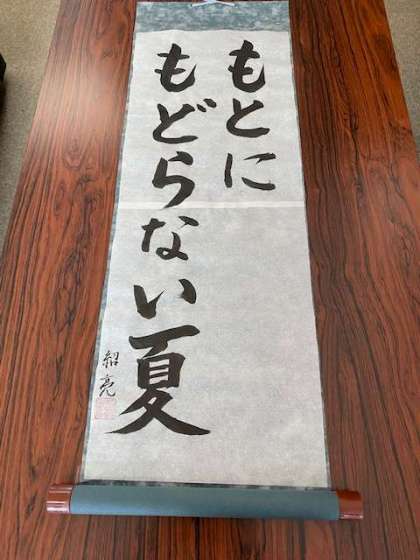 もとに
もどらない夏
紹亮